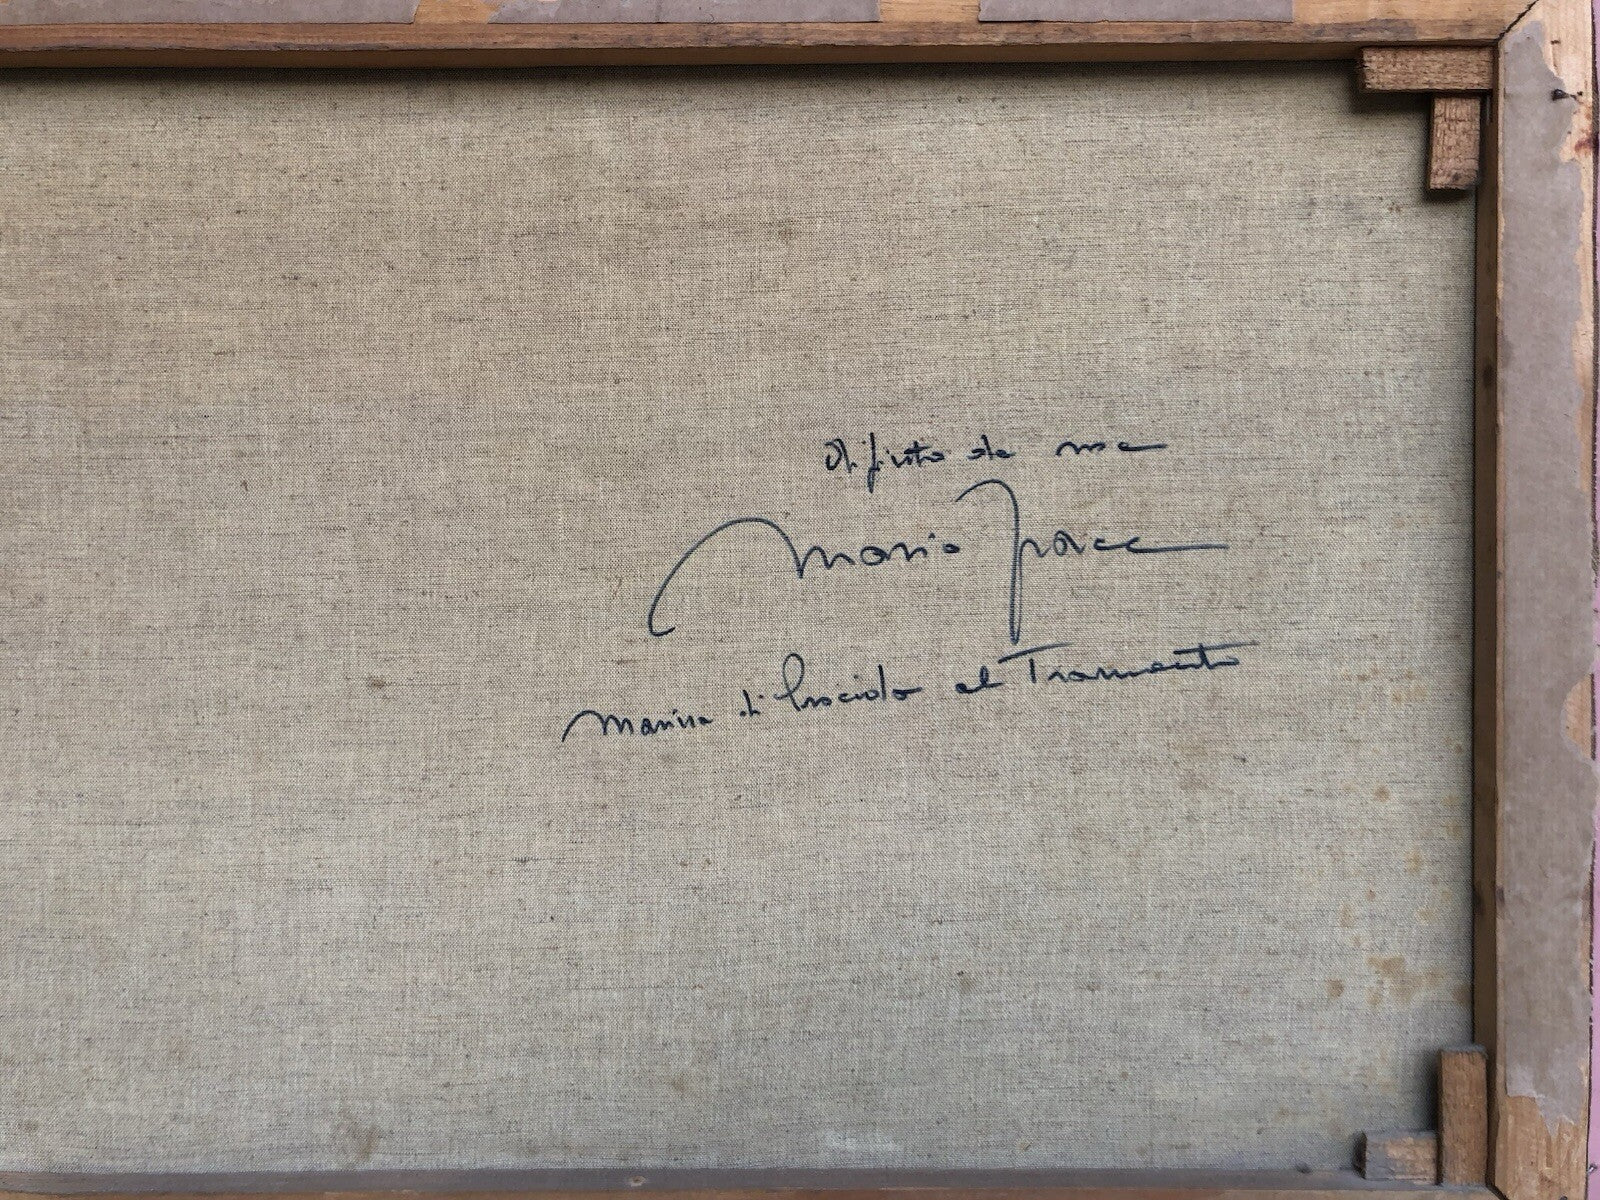 Dipinto da me
Mario
Marina di Procida al Tramonto